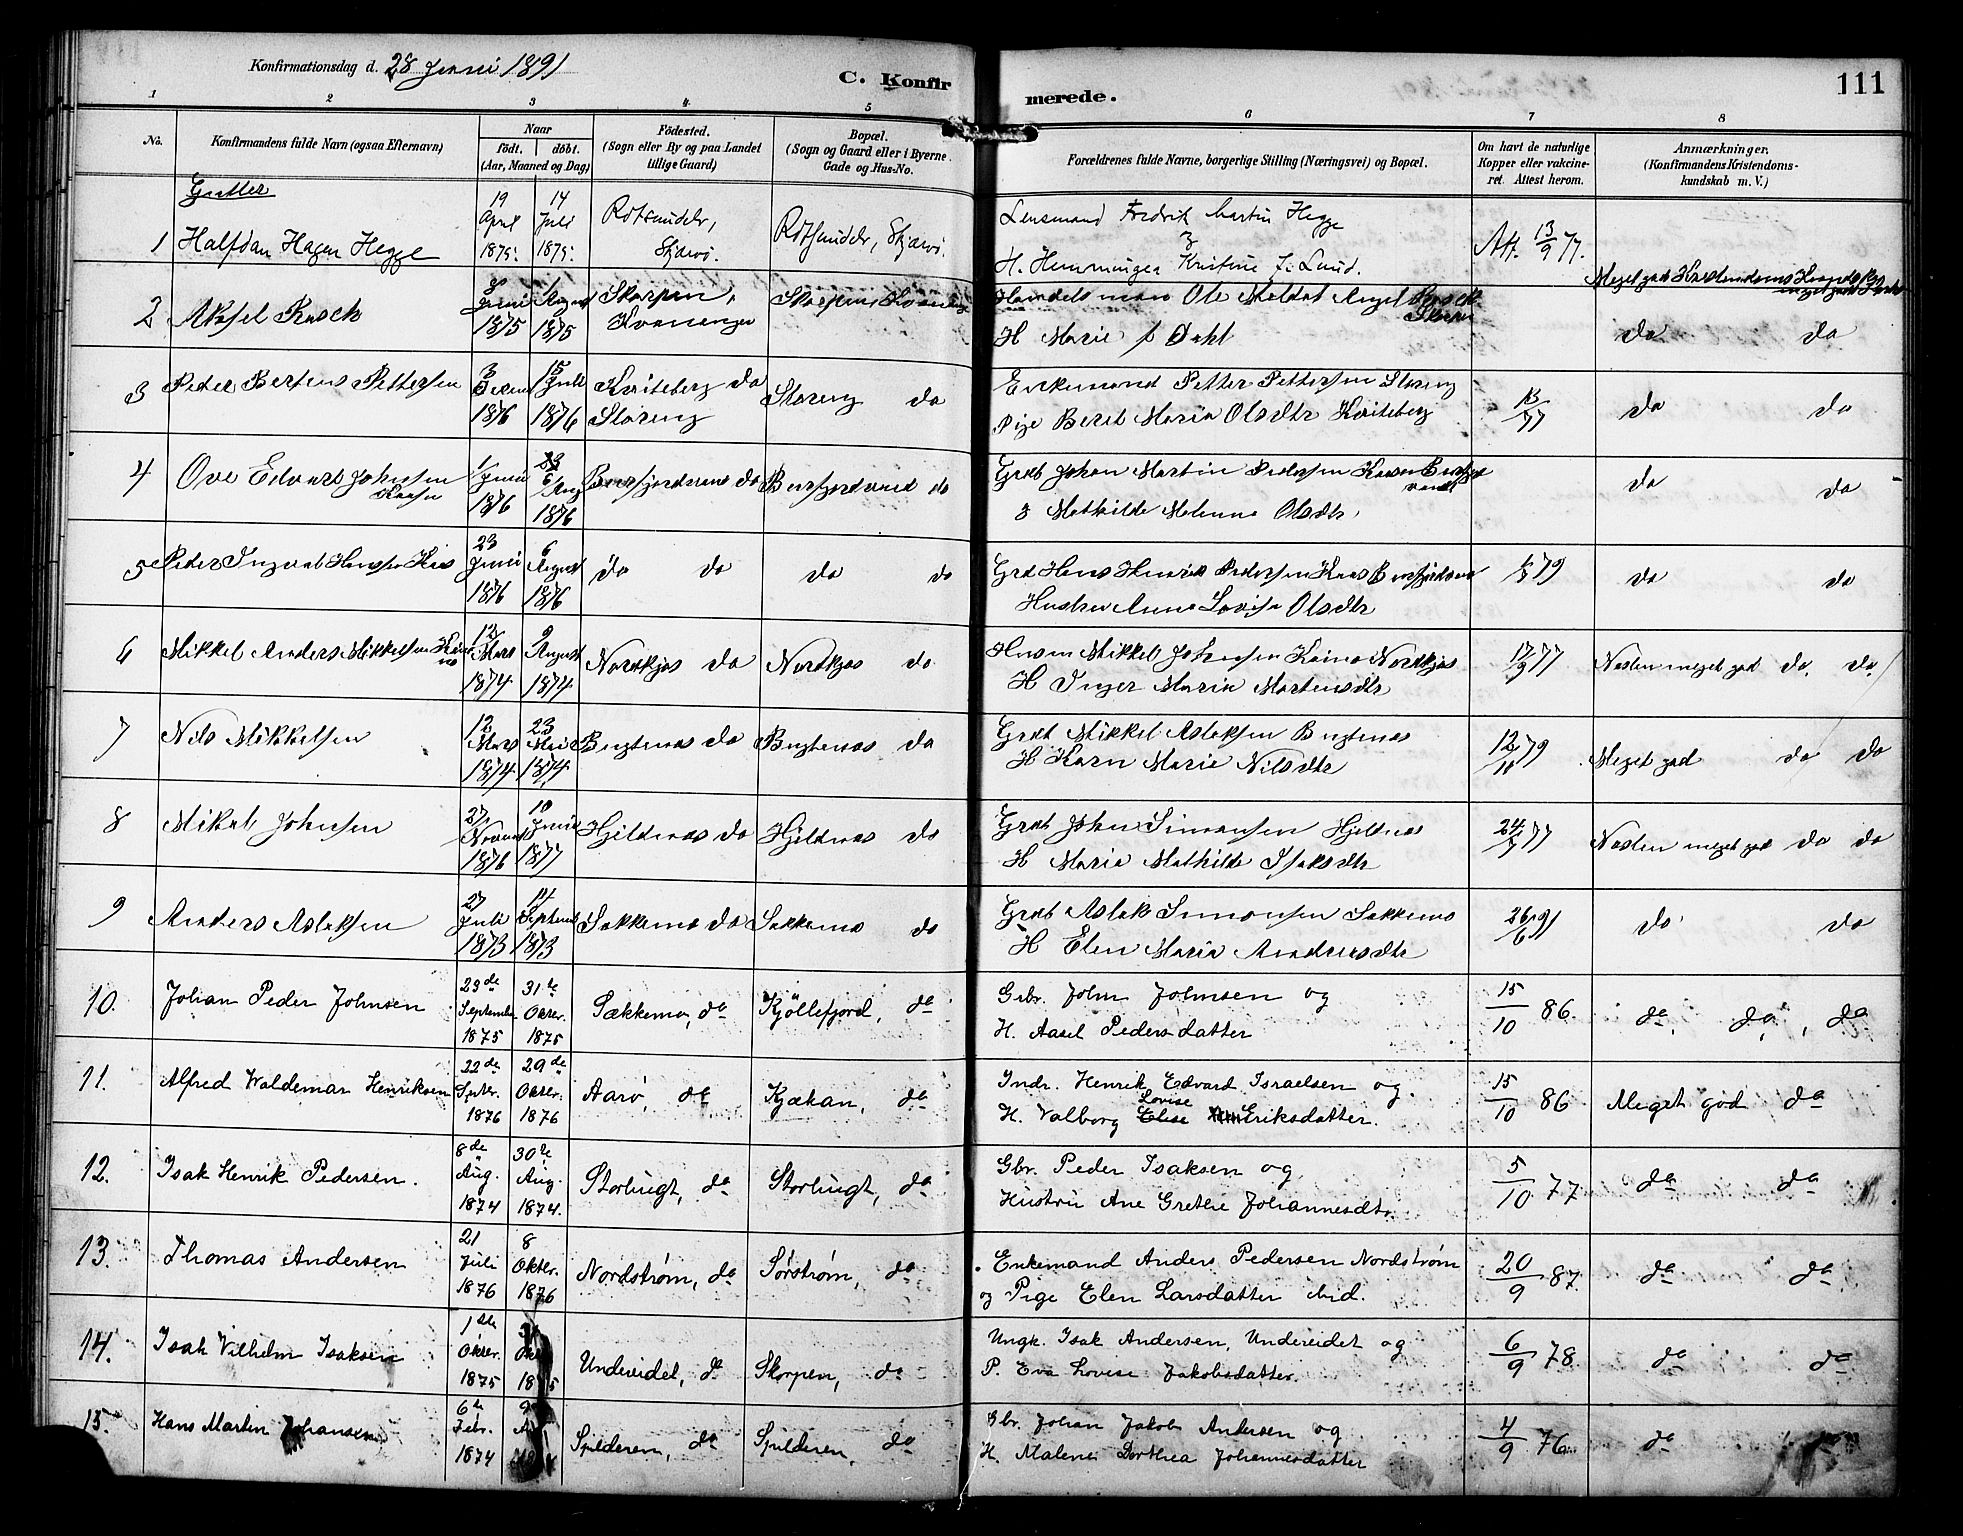 Konfirmationsdag d. 28 Juni 1891
C. Konfir
merede.
111
1 2 3 4 5 6 7 8
No.
Konfirmandens fulde Navn (ogsaa Efternavn)
Naar
født. døbt.
(Aar, Maaned og Dag)
Fødested.
(Sogn eller By og paa Landet
tillige Gaard)
Bopæl.
(Sogn og Gaard eller i Byerne
Gade og Hus-No.
Forældrenes fulde Navne, borgerlige Stilling (Næringsvei) og Bopæl.
Om havt de naturlige
Kopper eller vakcine-
ret. Attest herom.
Anmærkninger.
(Konfirmandens Kristendoms-
kundskab m. V.)
Gutter
1 Halfdan Hagen Hegge
19 April 1875.
14 Juli 1875.
Rotsundelv, Skjærvø.
Rotsundelv, Skjærvø.
Lensmand Fredrik Martin Hegge
&
H. Hemminger Kristine f. Lund.
Att. 13/9 77.
Meget god Kristendoms Kundskab
2 Aksel Rasch
Juni 1875
August 1875
Skorpen, Kvænangen
Skorpen Kvænangen
Handelsmand Ole Meldal Angel Rasch
Skorpen
H Marie f Dahl
do do
3 Peder Bertens Pettersen
3 1876
15 Juli 1876
Kviteberg do
Storeng
Storeng do
Enkemand Petter Pettersen Storeng
Pige Berit Maria Olsdtr Kviteberg
13/9 77
do do
4 Ove Edvart Johnsen
1 Juni 1876
6 Aug 1876
Bursfjordvand do
Bursfjordvand do
Grdb Johan Martin Pedersen Bursfjord
vand
& Mathilde Malenna Olsdtr
do do
5 Peder Ingval Hansen
23 Juni 1876
6 August 1876
do do
do do
Grd Hans Henrik Pedersen Bursfjordvand
Hustru Anne Lovisa Olsdtr
79
do do
6 Mikkel Anders Mikkelsen
12 Mars 1874
9 August 1874
Nordkjos do
Nordkjos do
Husm Mikkel Johansen Nordkjos
H Inger Maria Martensdtr
17/9 77
Næsten meget god do. do.
7 Nils Mikkelsen
12 Mars 1874
23 1874
Bugtenes do
Bugtenes do
Grdb Mikkel Aslaksen Bugtenes
H Karn Maria Nilsdtr
12/11 79
Meget god do do
8 Mikal Johnsen
27 Novemb 1876
10 Juni 1877
Hjeldnes do
Hjeldnes do
Grdb John Simonsen Hjeldnes
H Maria Mathilde Isaksdtr
24/7 77
Næsten meget god do do
9 Anders Aslaksen
27 Juli 1873
14 Septemb 1873
Sækkemo do
Sækkemo do
Grdb Aslak Simonsen Sækkemo
H Elen Maria Andersdtr
26/6 91
do do
10. Johan Peder Johnsen
23de September 1875
31te Oktbr. 1875
Sækkemo, do
Kjöllefjord, do
Grbr. John Johnsen og
H. Aasel Pedersdatter
15/10 86.
do, do, do
11. Alfred Waldemar Henriksen
22de Sptbr. 1876
29de Oktbr. 1876
Aarø, do
Kjækan, do
Indr. Henrik Edvard Israelsen og
Lovise
H. Valborg Elise Eriksdatter.
15/10 86
Meget god do
12. Isak Henrik Pedersen.
8de Aug. 1874
30te Aug. 1874.
Storbugt, do
Storbugt, do
Gbr. Peder Isaksen og
Hustru Ane Grethe Johannesdt.
5/10 77
do do
13. Thomas Andersen
21 Juli 1876
8 Oktbr. 1876
Nordstrøm, do
Sørstrøm, do
Enkemand Anders Pedersen Nordstrøm
og Pige Elen Larsdatter ibid.
20/9 87.
do do
14. Isak Vilhelm Isaksen
1ste Oktbr. 1875
1875
Undereidet, do
Skorpen, do
Ungk. Isak Andersen, Undereidet og
P. Eva Lovise Jakobsdatter.
6/9 78
do do
15. Hans Martin Johansen
6te Febr. 1874
Spilderen, do
Spilderen, do
Gbr. Johan Jakob Andersen og
H. Malene Dorthea Johannesdatter
4/9 76
do do